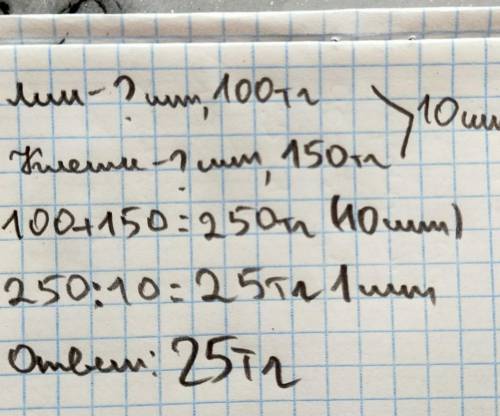 лин-? шт, 100тг
Клетки-? шт, 150тг
10шт
100+150=250тг (10шт)
250:10=25тг 1шт
Ответ: 25тг